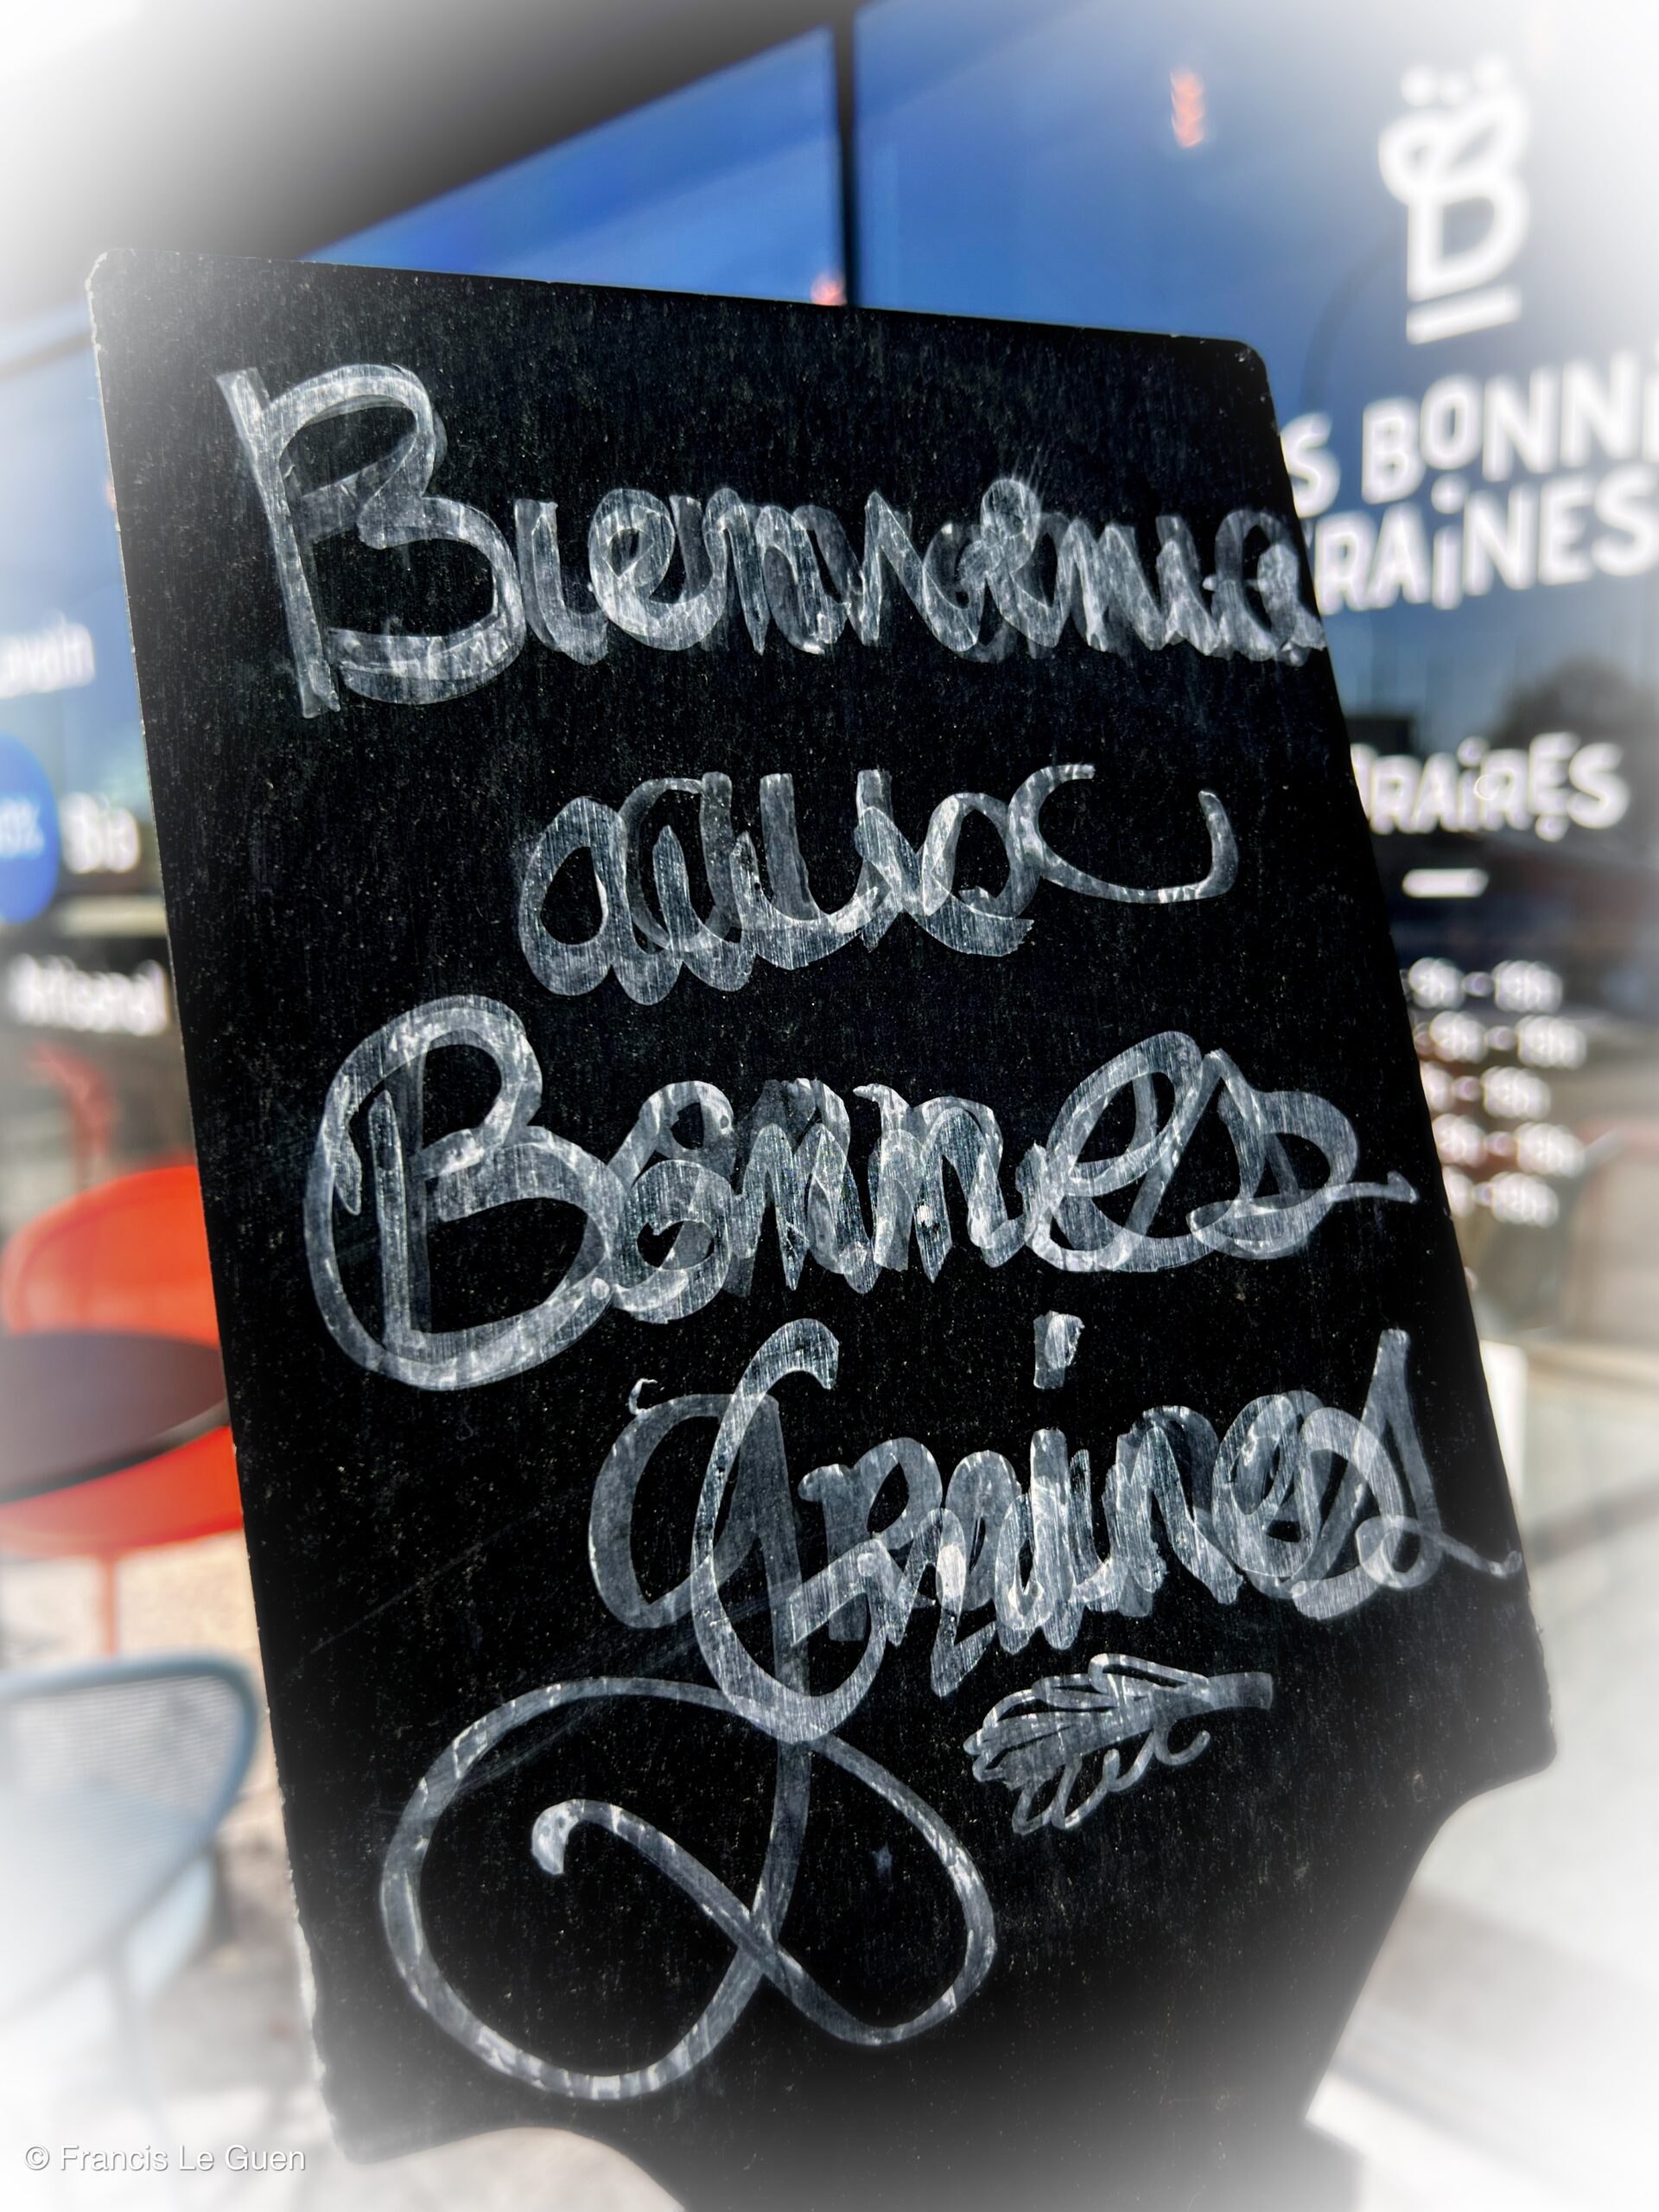 Bienvenue
aux
Bonnes
Graines
B
S BONN
RAINES
RAIRES
Bio
Artisanal
© Francis Le Guen